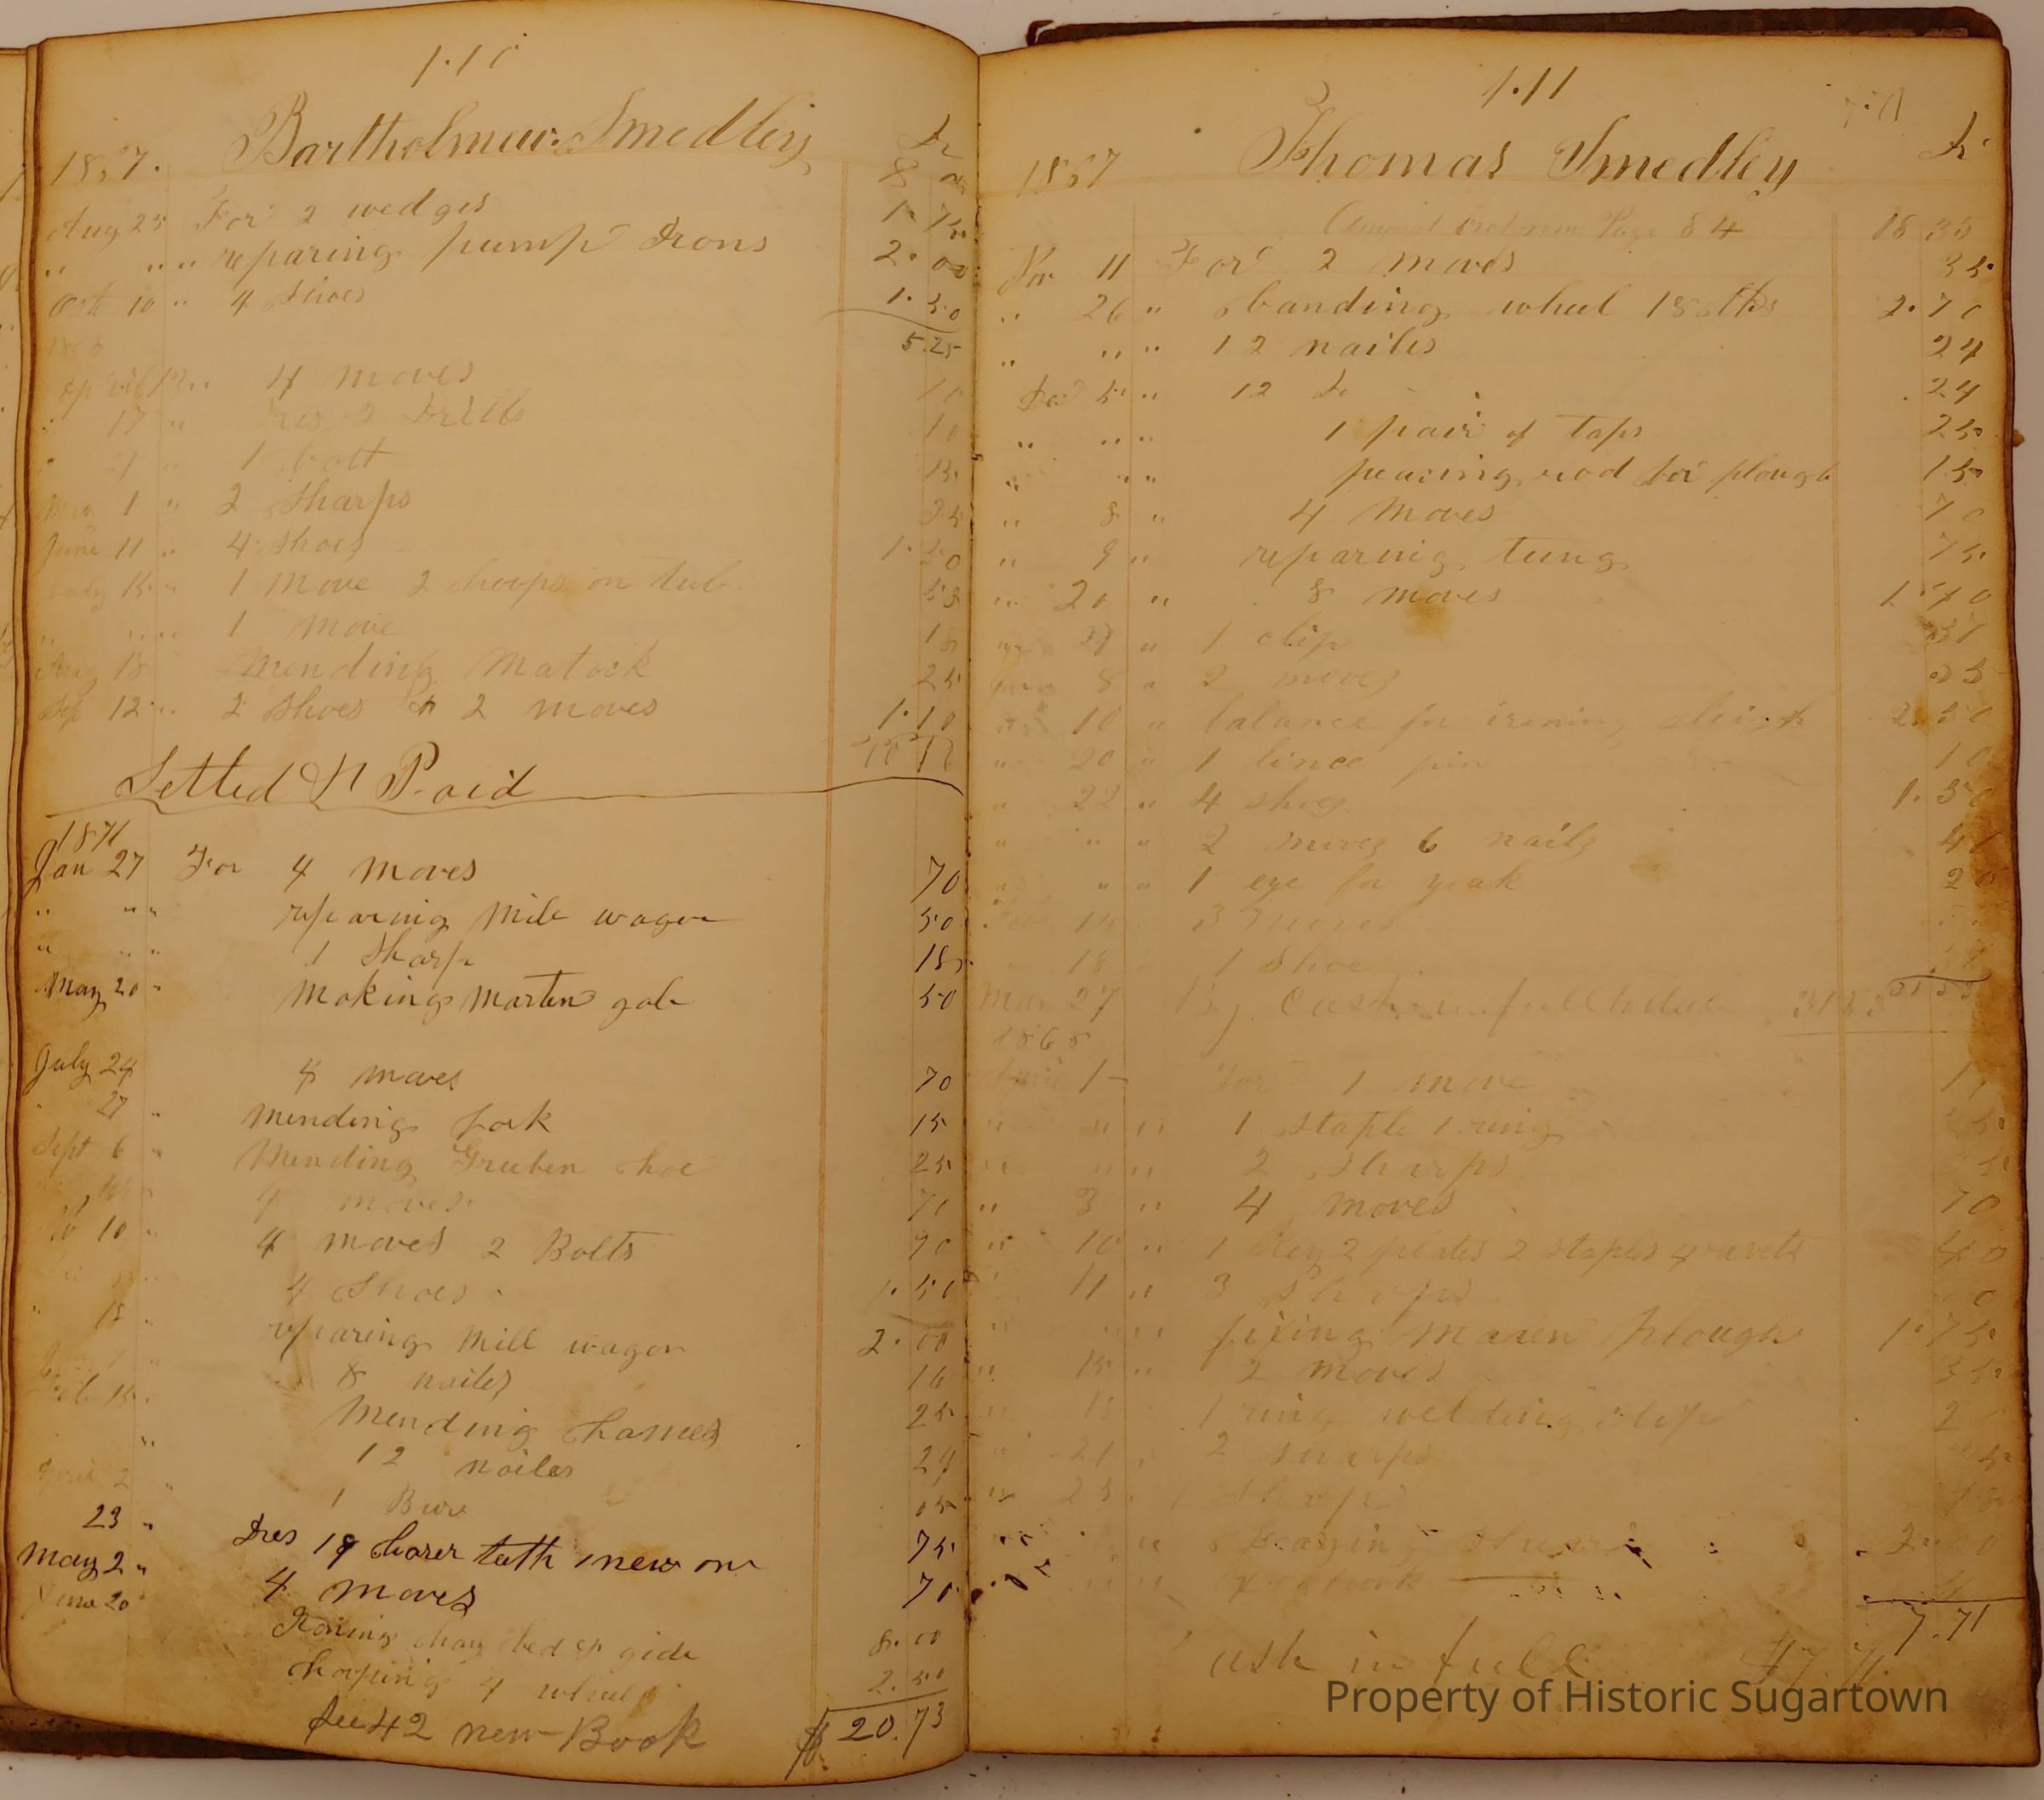 1.11
Bartholmew Smedley Dr
1867.
Aug 25 For 2 wedges 1.75
" " " reparing pump Irons 2.00
Oct 10 " 4 Shoes 1.50
5.25
April 4 moves 70
17 " 2 Drills 10
1 bolt 15
May 1 " 2 Sharps 35
June 11 " 4 Shoes 1.50
July 15 " 1 Move 2 hoops on tub 58
" " " 1 Move 18
Aug 18 Mending Matock 25
Sep 12 " 2 Shoes & 2 moves 1.10
Setled & Paid
1871
Jan 27 For 4 moves 70
" " " reparing Mill wagon 50
" " " 1 Sharp 18
May 20 " Making Marten gal 50
July 24 4 moves 70
27 " Mending fork 15
Sept 6 " Mending Gruben hoe 25
4 moves 70
10 " 4 moves 2 Bolts 90
4 Shoes 1.50
18 " reparing Mill wagon 2.00
8 nailes 16
Mending hames 25
12 nailes 24
April 2 " 1 Bure 05
23 " Dres 19 harer teeth 1 new on 75
May 2 " 4 moves 70
June 20 Ironing hay bed & gide 8.00
hooping 4 wheels 2.50
See 42 new Book $20.73
1.11
Thomas Smedley Dr
1867
Amount Page 84 18 35
Nov 11 For 2 moves 35
" 26 " banding wheel 18 2.70
" " " 12 nailes 24
Dec 5 " 12 Do 24
" " " 1 pair of taps 25
" " " peacing rod for plough 15
" 8 " 4 Moves 70
" 9 " reparing tung 75
" 20 " 8 moves 1.40
" 27 " 1 clip 37
8 " 2 moves 35
" 10 " balance for irening sleigh 2.50
" 20 " 1 lince pin 10
" 22 " 4 shoes 1.50
" " " 2 moves 6 nails 47
" " " 1 eye for yoak 20
14 3 moves
18 1 Shoe
Mar 27 By Cash in full to date 31 53
1868
April 1 For 1 move
" " " 1 staple 1 ring
" " " 2 Sharps
" 3 " 4 moves 70
" 10 " 1 Key 2 plates 2 staples 4 rivets 40
" 11 " 3 Sharps
" " " fixing plough 1.75
" 15 " 2 moves 35
" 1 ring welding clip
" 21 2 Sharps
" 23 1 Sharp
2.00
7.71
ash in full
Property of Historic Sugartown